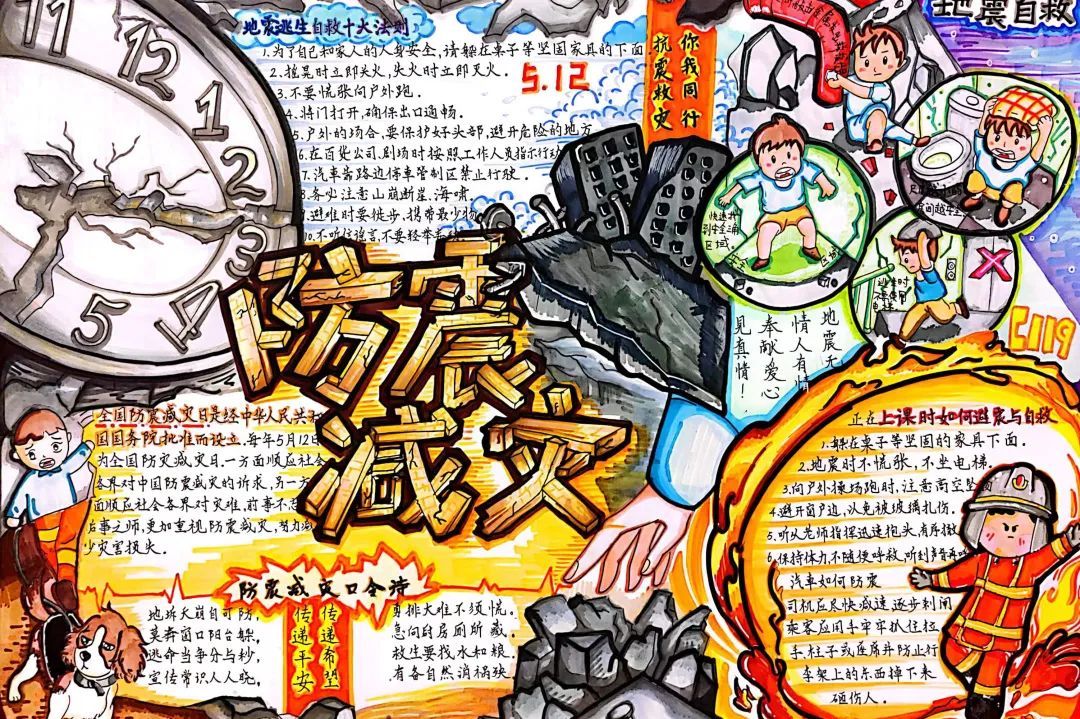 地震逃生自救十大法则
1.为了自己和家人的人身安全,请躲在桌子等坚固家具的下面
2.摇晃时立即关火,失火时立即灭火.
3.不要慌张向户外跑.
4.将门打开,确保出口通畅.
5.户外的场合,要保护好头部,避开危险的地方
6.在百货公司.剧场时按照工作人员指示行动
7.汽车靠路边停车管制区禁止行驶.
8.务必注意山崩断崖.海啸.
9.避难时要徒步,携带最少物
10.不听信谣言,不要轻举
5.12
抗震救灾
你我同行
地震自救
防震
减灾
11
12
1
2
3
5
全国防震减灾日是经中华人民共和
国国务院批准而设立.每年5月12日
为全国防灾减灾日.一方面顺应社会
各界对中国防震减灾的诉求,另一方
面顺应社会各界对灾难,前事不忘
后事之师,更加重视防震减灾,努力减
少灾害损失.
防震减灾口令诗
地坼天崩自可防,
莫奔窗口阳台躲,
逃命当争分与秒,
宣传常识人人晓,
传递平安
传递希望
勇排大难不须慌.
急向厨房厕所藏.
救生要找水和粮.
有备自然消祸殃.
快速并
到安全
区域.
逃生时
不要使用
电梯
地震无
情人有情
奉献爱心
见真情!
119
正在上课时如何避震与自救
1.躲在桌子等坚固的家具下面.
2.地震时不慌张,不坐电梯.
3.向户外操场跑时,注意高空坠物
4.避开窗户边,以免被玻璃扎伤.
5.听从老师指挥迅速抱头,有序撤
6.保持体力不随便呼救,听到声音再呼
汽车如何防震
司机应尽快减速,逐步刹闸
乘客应用手牢牢抓住拉
手.柱子或座席并防止行
李架上的东西掉下来
砸伤人.